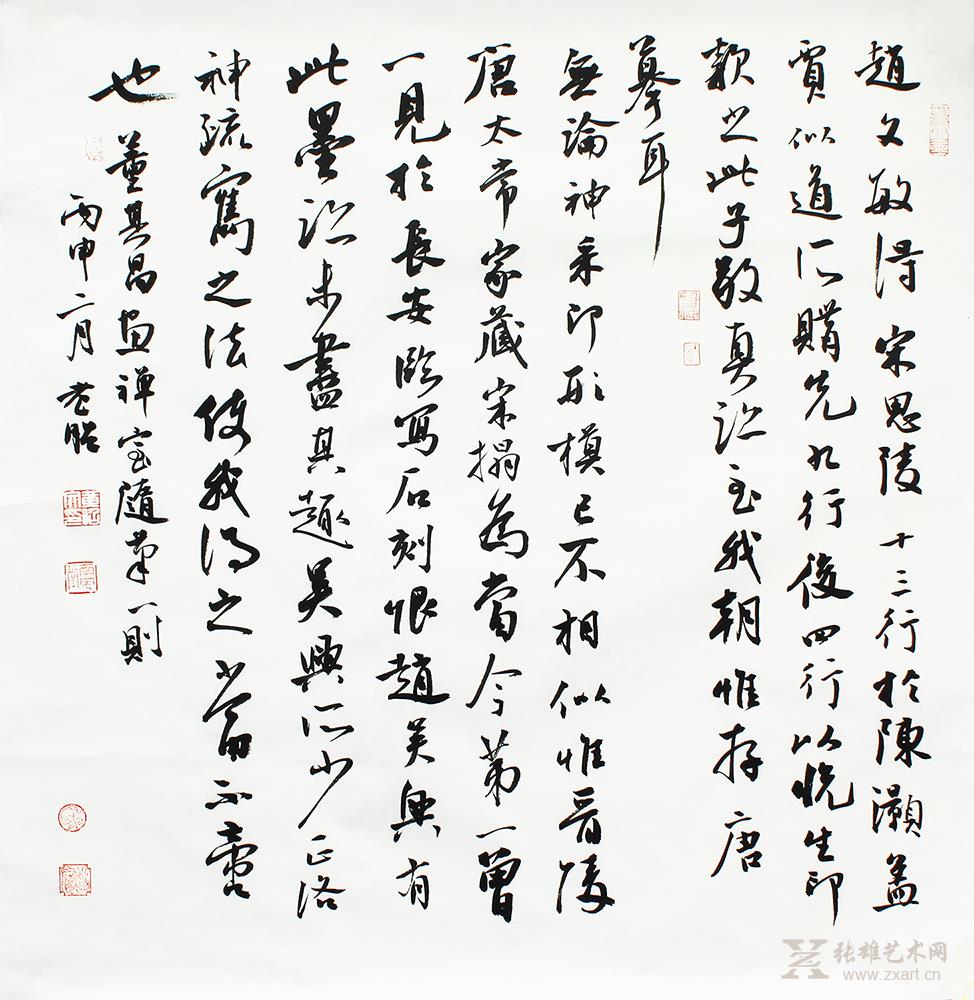 趙文敏得宋思陵十三行於陳灝蓋
賈似道所購先九行後四行以悅生印
款之此子敬真跡至我朝惟存唐
摹耳
無論神采即形模已不相似惟晉陵
唐太常家藏宋搨為當今第一曾
一見於長安臨寫石刻恨趙吳興有
此墨跡未盡其趣吳興所少正洛
神疏寯之法使我得之當不啻
也董其昌畫禪室隨筆一則
丙申二月
张雄艺术网
www.zxart.cn